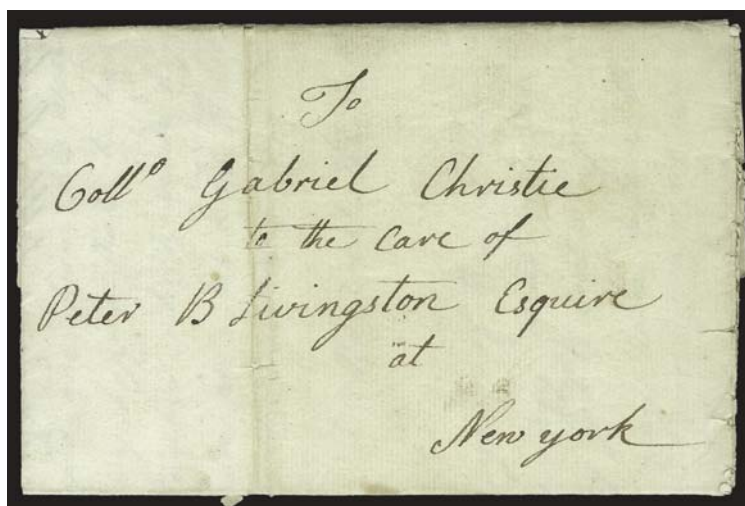 To
Coll° Gabriel Christie
to the Care of
Peter B Livingston Esquire
at
New york